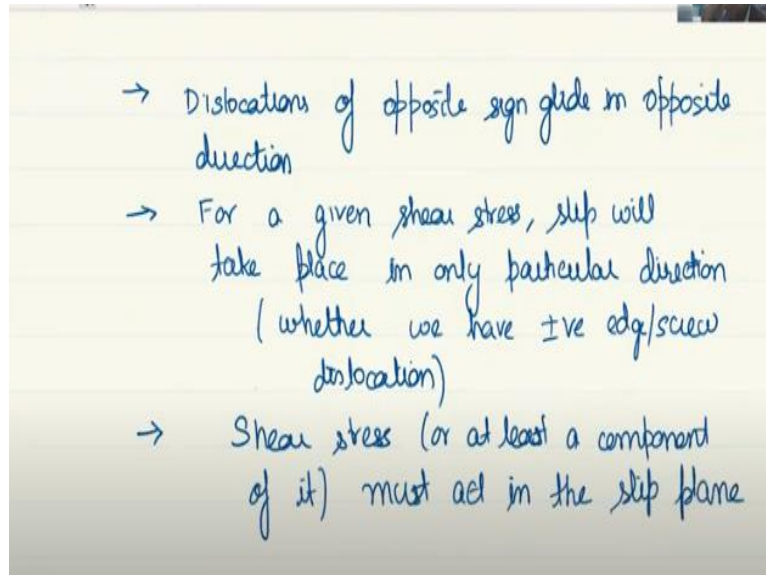 → Dislocations of opposite sign glide in opposite
direction
→ For a given shear stress, slip will
take place in only particular direction
(whether we have ±ve edge/screw
dislocation)
→ Shear stress (or at least a component
of it) must act in the slip plane